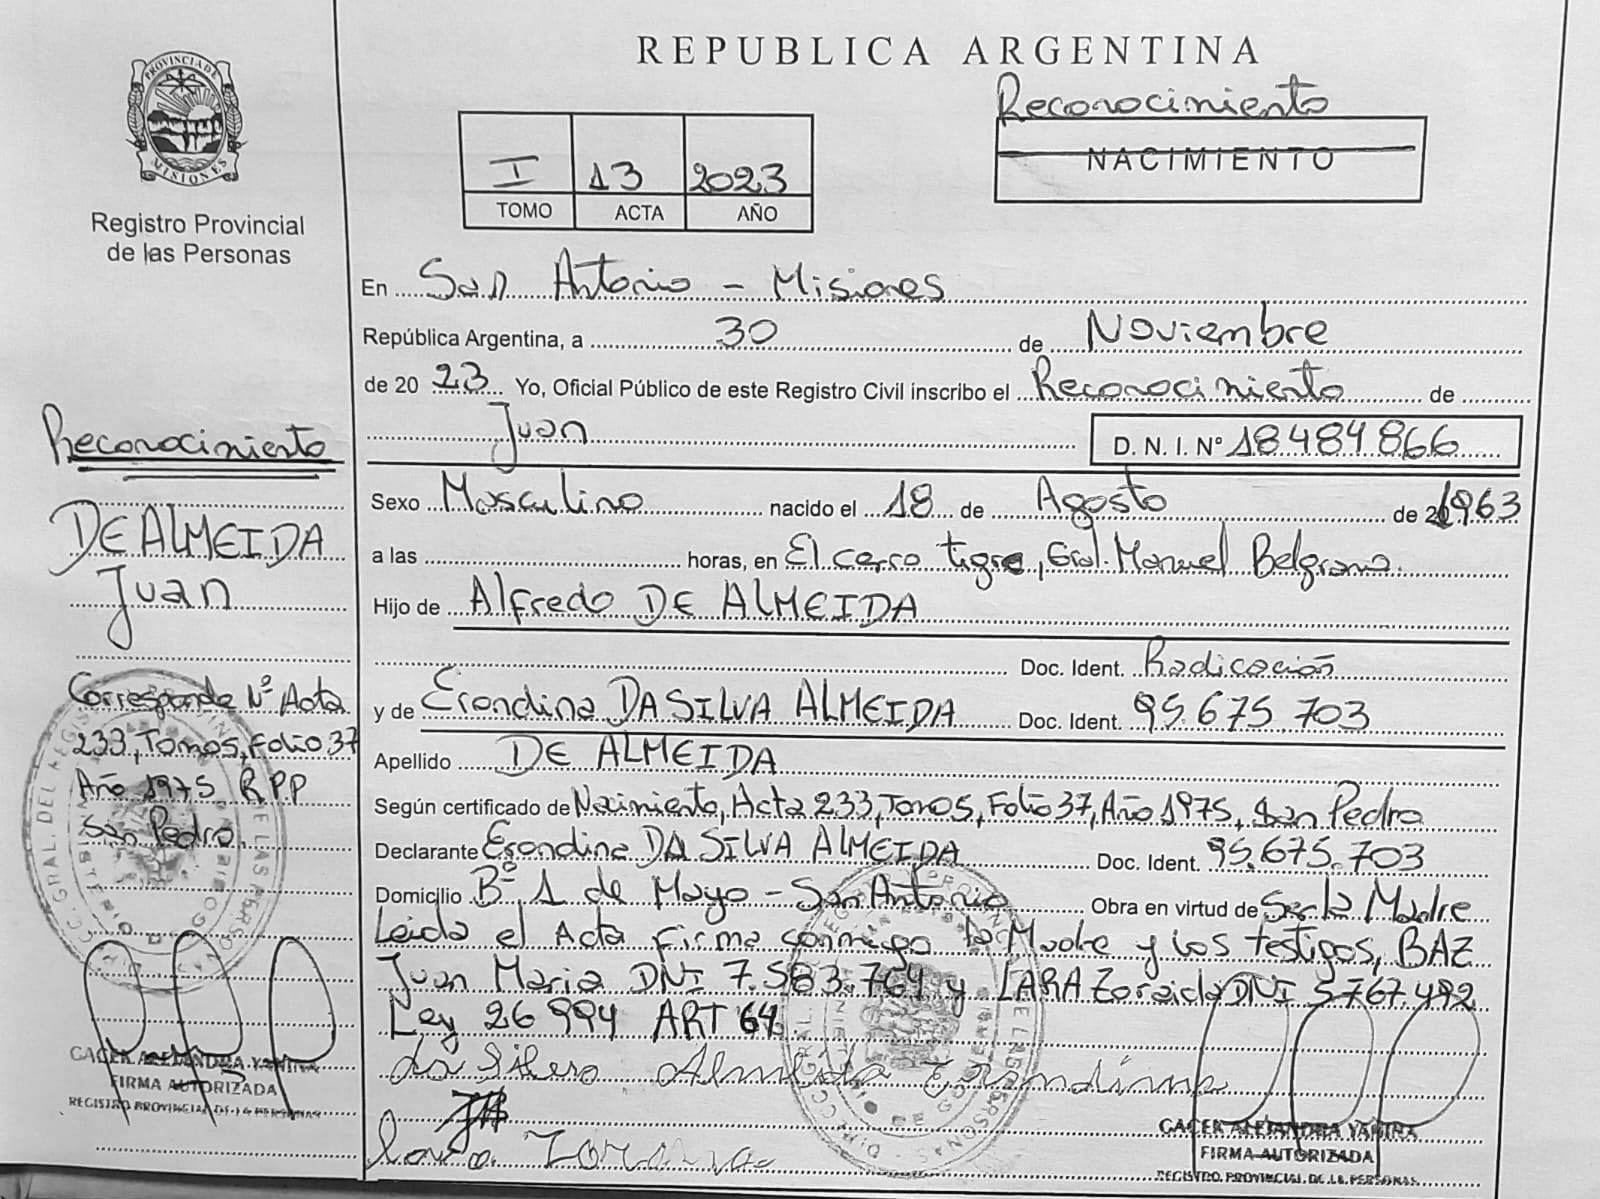 REPUBLICA ARGENTINA
PROVINCIA DE
MISIONES
Registro Provincial
de las Personas
Reconocimiento
NACIMIENTO
I 13 2023
TOMO ACTA AÑO
En San Antonio - Misiones
República Argentina, a 30 de Noviembre
de 2023 Yo, Oficial Público de este Registro Civil inscribo el Reconocimiento de
Juan D. N. I. N° 18.484.866
Sexo Masculino nacido el 18 de Agosto de 1963
a las horas, en El cerro tigre, Gral. Manuel Belgrano.
Hijo de Alfredo DE ALMEIDA
Doc. Ident. Radicación
y de Erondina DA SILVA ALMEIDA Doc. Ident. 95.675.703
Apellido DE ALMEIDA
Según certificado de Nacimiento, Acta 233, Tomo 5, Folio 37, Año 1975, San Pedro
Declarante Erondina DA SILVA ALMEIDA Doc. Ident. 95.675.703
Domicilio B° 1 de Mayo - San Antonio Obra en virtud de Ser la Madre
Leida el Acta firma conmigo la Madre y los testigos, BAZ
Juan Maria DNI 7.583.764 y LARA Zoraida DNI 5767.492
Ley 26994 ART 64
da Silva Almeida Erondina
GACEK ALEJANDRA YANINA
FIRMA AUTORIZADA
REGISTRO PROVINCIAL DE LA PERSONAS
Reconocimiento
DE ALMEIDA
Juan
Corresponde N° Acta
233, Tomo 5, Folio 37
Año 1975 RPP
San Pedro.
GACEK ALEJANDRA YANINA
FIRMA AUTORIZADA
REGISTRO PROVINCIAL DE LA PERSONAS